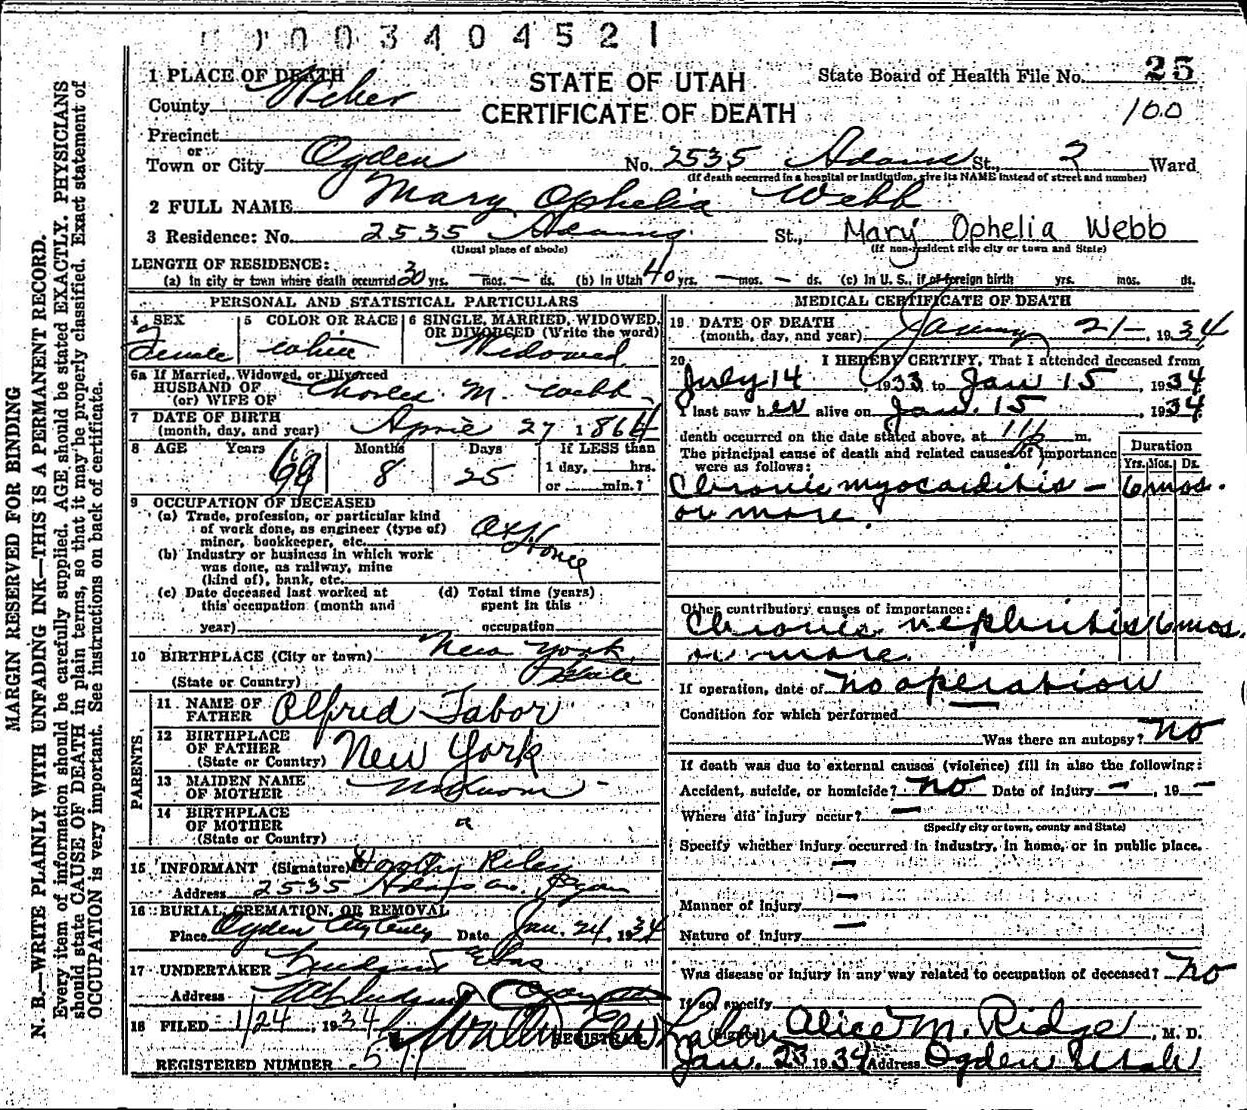 0003404521
MARGIN RESERVED FOR BINDING
N. B.—WRITE PLAINLY WITH UNFADING INK—THIS IS A PERMANENT RECORD.
Every item of information should be carefully supplied. AGE should be stated EXACTLY. PHYSICIANS
should state CAUSE OF DEATH in plain terms, so that it may be properly classified. Exact statement of
OCCUPATION is very important. See instructions on back of certificate.
STATE OF UTAH
CERTIFICATE OF DEATH
State Board of Health File No. 25
100
1 PLACE OF DEATH
County Weber
Precinct
or
Town or City Ogden No. 2535 Adams St., 2 Ward
(If death occurred in a hospital or institution, give its NAME instead of street and number)
2 FULL NAME Mary Ophelia Webb
3 Residence: No. 2535 Adams St., Mary Ophelia Webb
(Usual place of abode) (If non-resident give city or town and State)
LENGTH OF RESIDENCE:
(a) In city or town where death occurred 30 yrs. — mos. — ds. (b) In Utah 40 yrs. — mos. — ds. (c) In U. S., if of foreign birth yrs. mos. ds.
PERSONAL AND STATISTICAL PARTICULARS
4 SEX Female
5 COLOR OR RACE white
6 SINGLE, MARRIED, WIDOWED, OR DIVORCED (Write the word) Widowed
6a If Married, Widowed, or Divorced
HUSBAND OF
(or) WIFE OF Charles M. Webb
7 DATE OF BIRTH
(month, day, and year) April 27 1864
8 AGE Years 69 Months 8 Days 25 If LESS than
1 day, hrs.
or min.?
9 OCCUPATION OF DECEASED
(a) Trade, profession, or particular kind
of work done, as engineer (type of)
miner, bookkeeper, etc. At Home
(b) Industry or business in which work
was done, as railway, mine
(kind of), bank, etc.
(c) Date deceased last worked at
this occupation (month and
year)
(d) Total time (years)
spent in this
occupation
10 BIRTHPLACE (City or town) New York
(State or Country) State
PARENTS
11 NAME OF
FATHER Alfred Tabor
12 BIRTHPLACE
OF FATHER
(State or Country) New York
13 MAIDEN NAME
OF MOTHER Unknown -
14 BIRTHPLACE
OF MOTHER
(State or Country) "
15 INFORMANT (Signature) Dorothy Riley
Address 2535 Adams Ave. Ogden
16 BURIAL, CREMATION, OR REMOVAL
Place Ogden City Cemetery Date Jan. 24. 1934
17 UNDERTAKER
Address
18 FILED 1/24, 1934
REGISTRAR
REGISTERED NUMBER
MEDICAL CERTIFICATE OF DEATH
19. DATE OF DEATH
(month, day, and year) January 21 — 1934
20 I HEREBY CERTIFY, That I attended deceased from
July 14 1933 to Jan 15, 1934
I last saw her alive on Jan. 15, 1934
death occurred on the date stated above, at 11 p m.
The principal cause of death and related causes of importance
were as follows:
Duration
Yrs. Mos. Ds.
Chronic myocarditis — 6 mos.
or more.
Other contributory causes of importance:
Chronic nephritis 6 mos.
or more.
If operation, date of no operation
Condition for which performed
Was there an autopsy? No
If death was due to external causes (violence) fill in also the following:
Accident, suicide, or homicide? no Date of injury —, 19 —
Where did injury occur? —
(Specify city or town, county and State)
Specify whether injury occurred in industry, in home, or in public place.
—
—
Manner of injury —
Nature of injury —
Was disease or injury in any way related to occupation of deceased? No
If so, specify
(Signed) Alice M. Ridge, M. D.
Jan. 23 1934 Address Ogden Utah